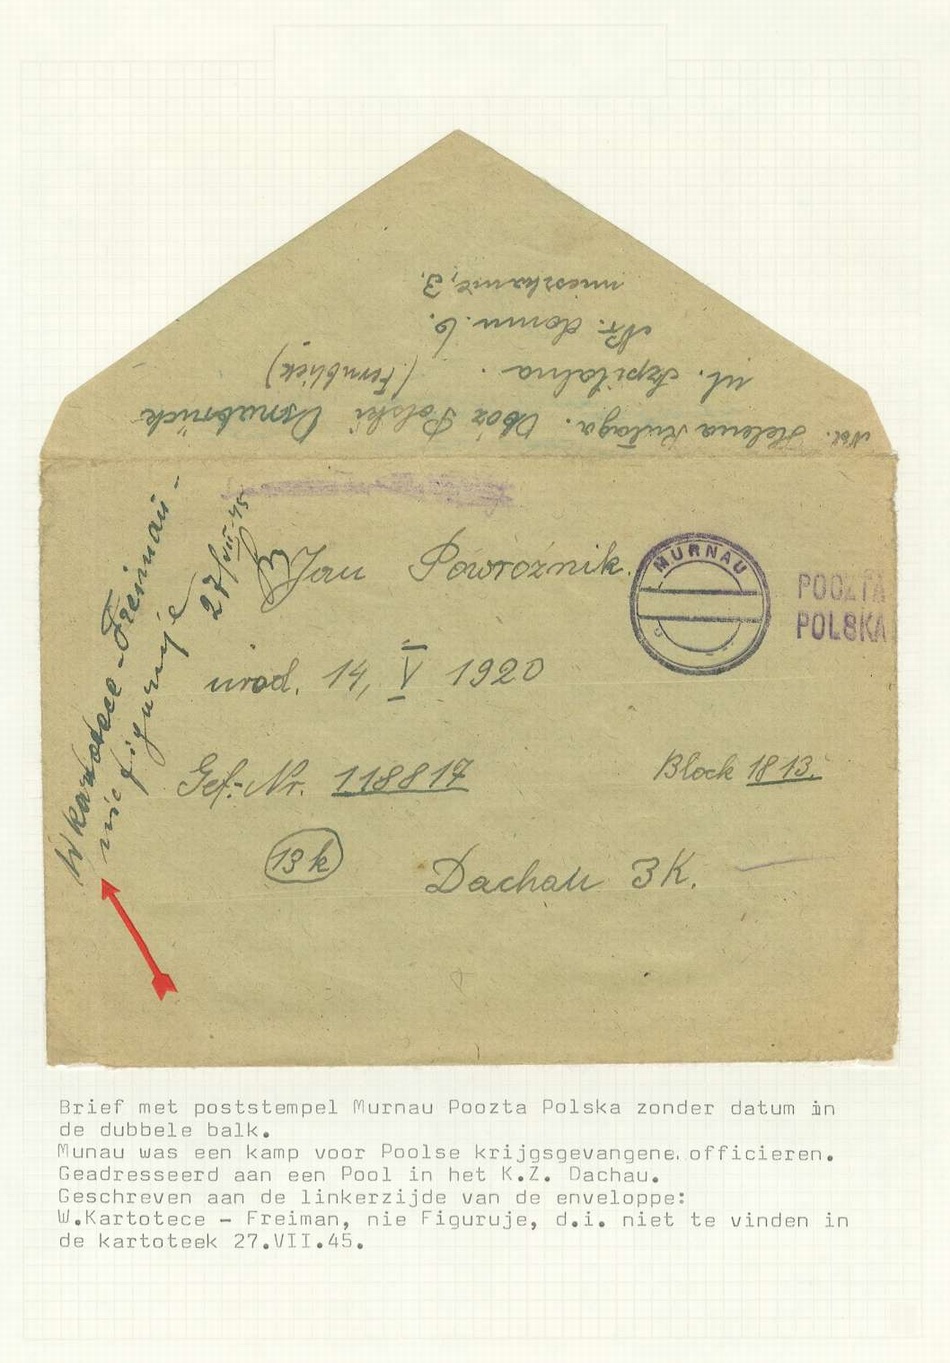 Nad. Helena Kułaga. Obóz Polski Osnabrück
ul. Szpitalna. (Fernblick)
Nr. domu 6.
mieszkanie, 3.
W kartotece - Freimann -
nie figuruje
27/VII 45
Jan Powroźnik.
MURNAU
POCZTA
POLSKA
urod. 14, V 1920
Gef.-Nr. 118817
Block 18 13.
13k
Dachau 3K.
Brief met poststempel Murnau Poozta Polska zonder datum in
de dubbele balk.
Munau was een kamp voor Poolse krijgsgevangene officieren.
Geadresseerd aan een Pool in het K.Z. Dachau.
Geschreven aan de linkerzijde van de enveloppe:
W.Kartotece - Freiman, nie Figuruje, d.i. niet te vinden in
de kartoteek 27.VII.45.